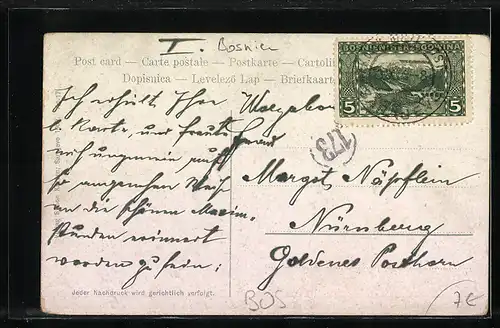 I. Bosnien
Post card — Carte postale — Postkarte — Cartolin
Dopisnica — Levelező Lap — Briefkaart
BOSNIEN-HERZEGOVINA
5 5
173
Ich erhielt Ihre
Karte, und freute
mich ungemein auf
so angenehme Weise
an die schönen
Stunden erinnert
worden zu sein!
Margot Näpflein
Nürnberg
Goldenes Posthorn
Jeder Nachdruck wird gerichtlich verfolgt.
BOS
7€